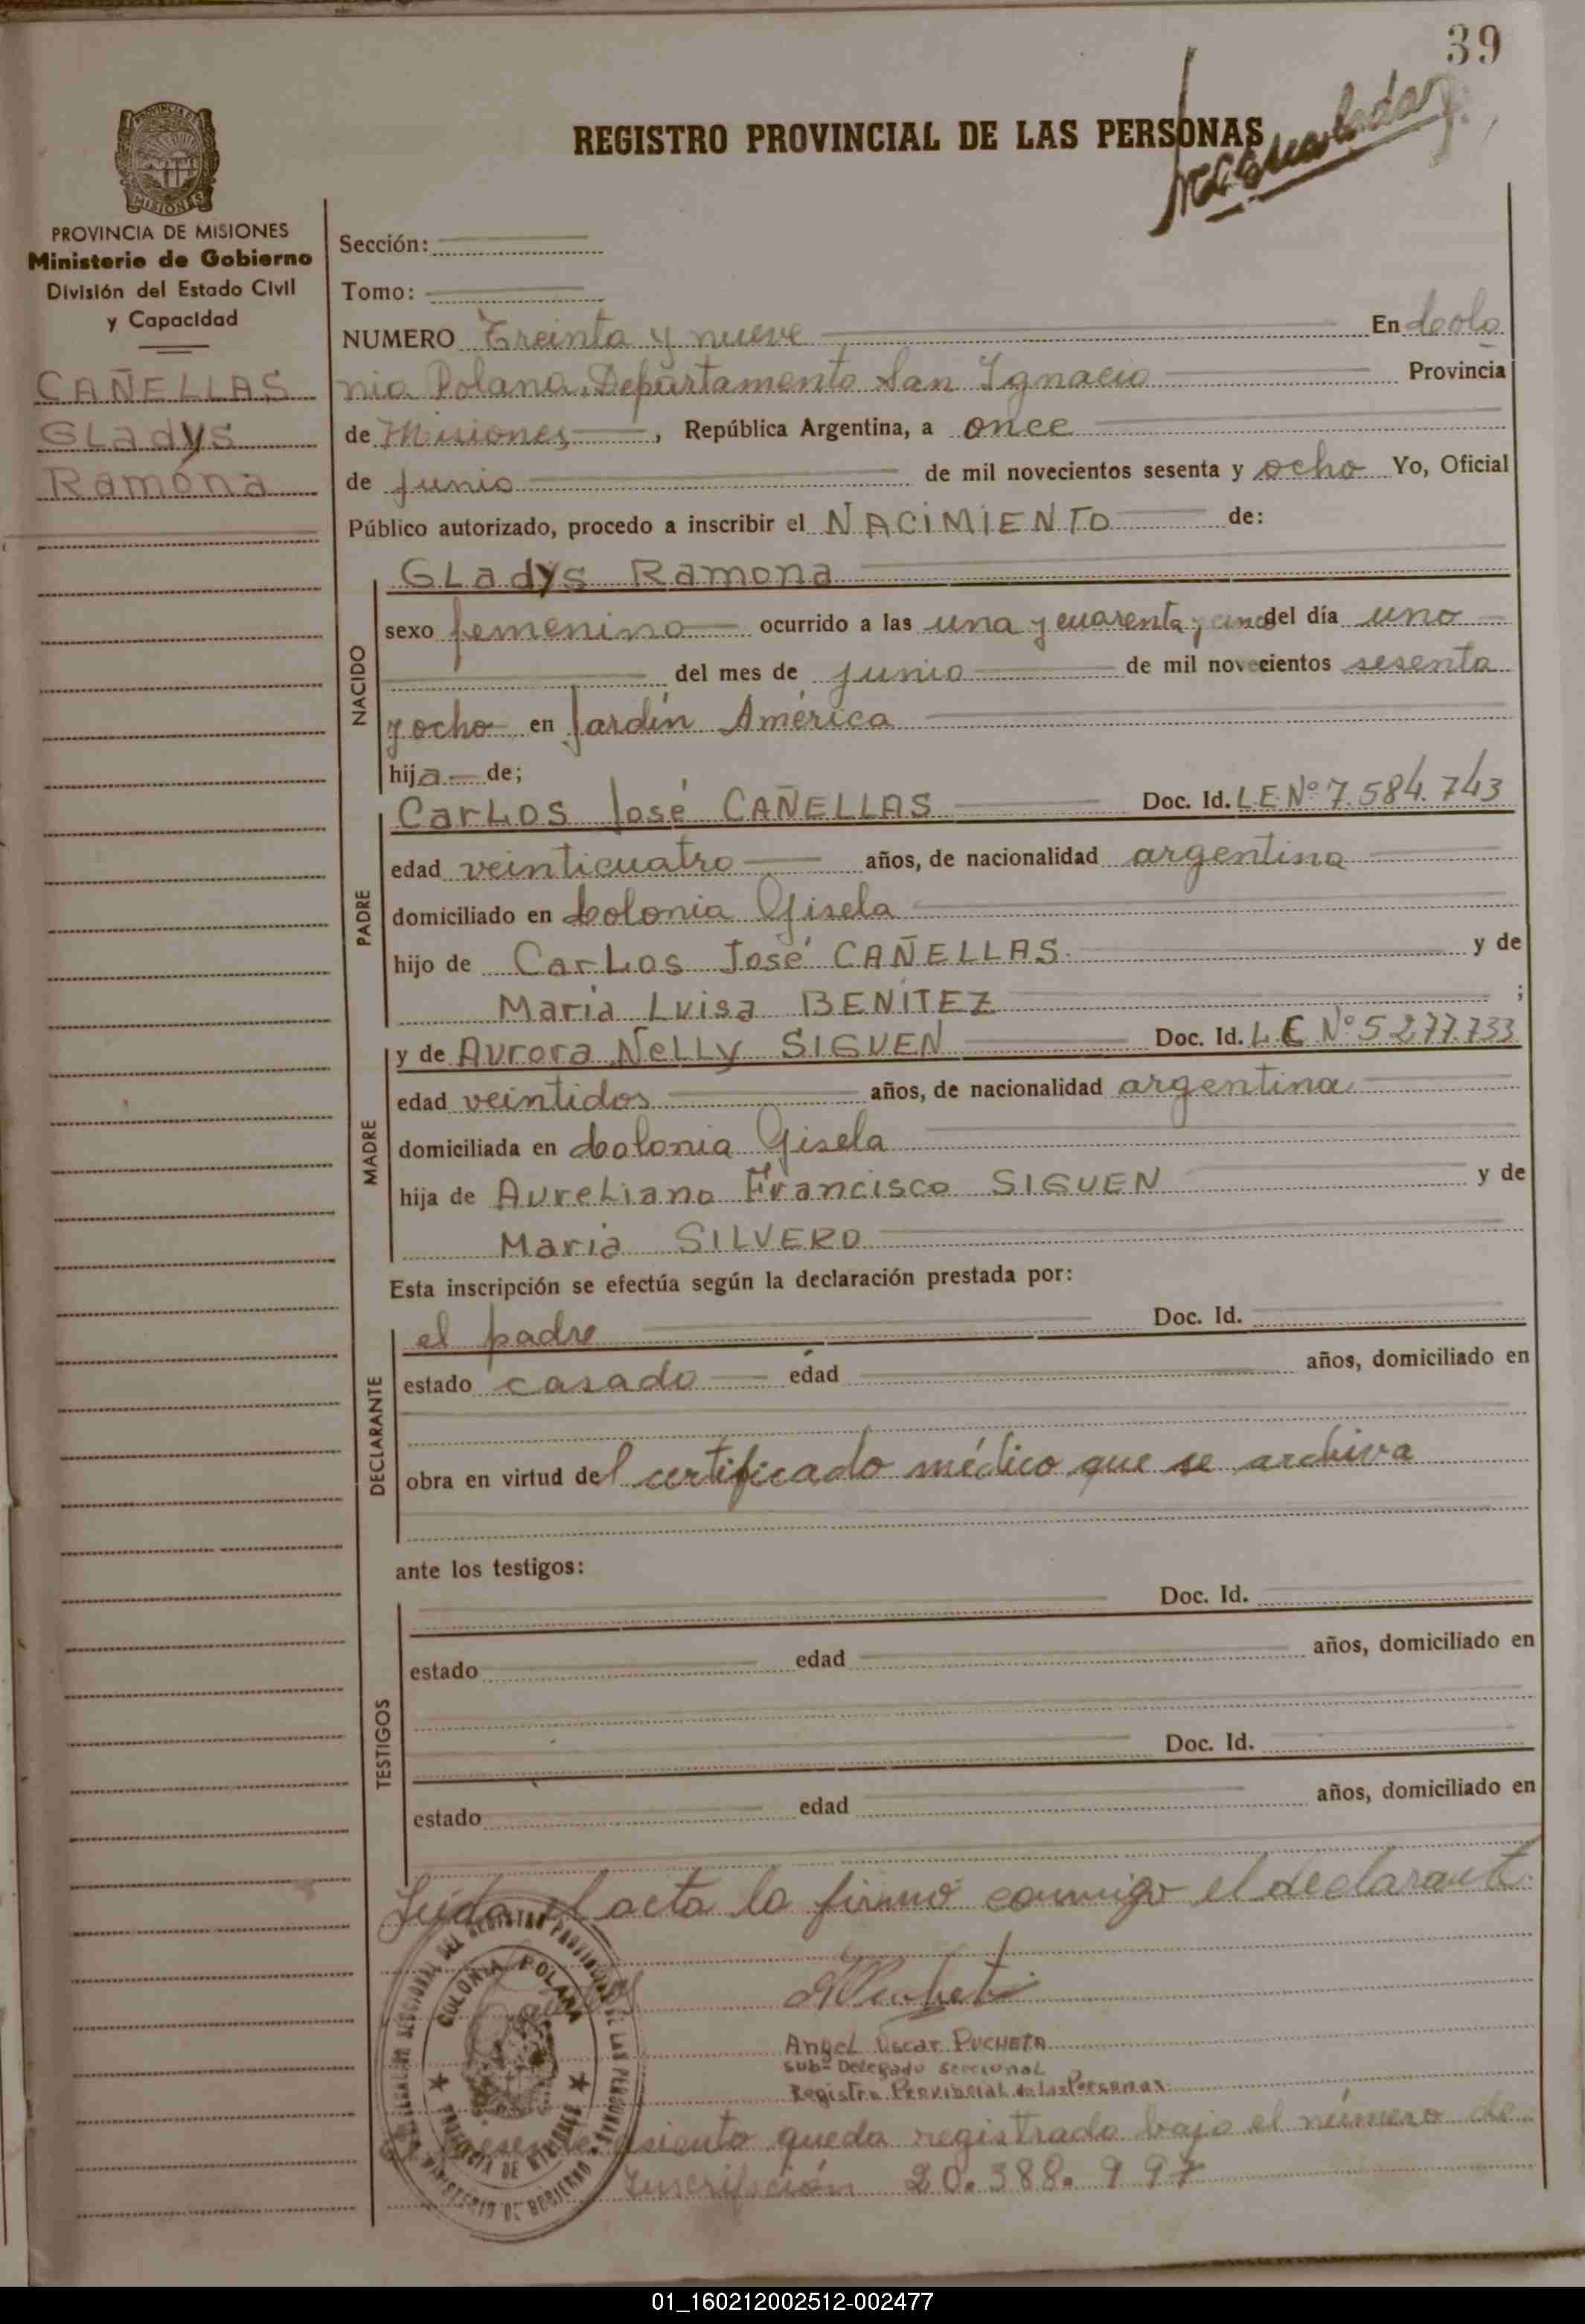 39
REGISTRO PROVINCIAL DE LAS PERSONAS
PROVINCIA DE MISIONES
Ministerio de Gobierno
División del Estado Civil
y Capacidad
CAÑELLAS
GLadys
Ramona
Sección:
Tomo:
NUMERO Treinta y nueve En Colo
nia Polana, Departamento San Ignacio Provincia
de Misiones, República Argentina, a once
de junio de mil novecientos sesenta y ocho Yo, Oficial
Público autorizado, procedo a inscribir el NACIMIENTO de:
NACIDO
GLadys Ramona
sexo femenino ocurrido a las una y cuarenta y cinco del día uno
del mes de junio de mil novecientos sesenta
y ocho en Jardín América
hija de;
PADRE
CarLos José CAÑELLAS Doc. Id. L.E.Nº 7.584.743
edad veinticuatro años, de nacionalidad argentina
domiciliado en Colonia Gisela
hijo de CarLos José CAÑELLAS y de
María Luisa BENITEZ ;
MADRE
y de Aurora NeLLy SIGUEN Doc. Id. L.C Nº 5.277.733
edad veintidos años, de nacionalidad argentina
domiciliada en Colonia Gisela
hija de AureLiano Francisco SIGUEN y de
María SILVERO
Esta inscripción se efectúa según la declaración prestada por:
DECLARANTE
el padre Doc. Id.
estado casado edad años, domiciliado en
obra en virtud del certificado médico que se archiva
ante los testigos:
TESTIGOS
Doc. Id.
estado edad años, domiciliado en
Doc. Id.
estado edad años, domiciliado en
Leída el acta la firmó conmigo el declarante
COLONIA POLANA
AngeL Oscar PUCHETA
Sub-Delegado Seccional
Registro Provincial de las Personas
asiento queda registrado bajo el número de
Inscripción 20.388.997
01_160212002512-002477